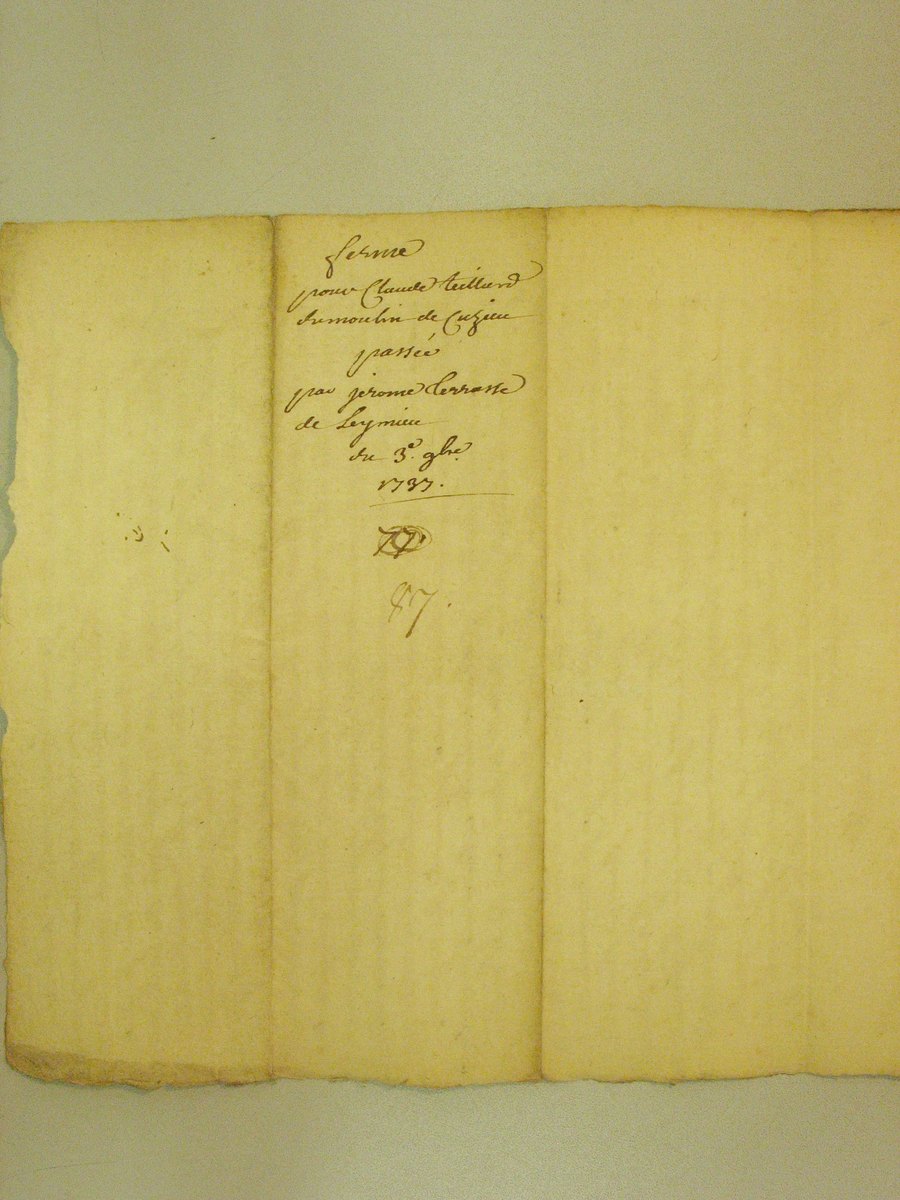 ferme
pour Claude teillard
du moulin de Cuzieu
passée
par jerome terrasse
de Leymieu
du 3e. 9bre.
1737.
77.
87.